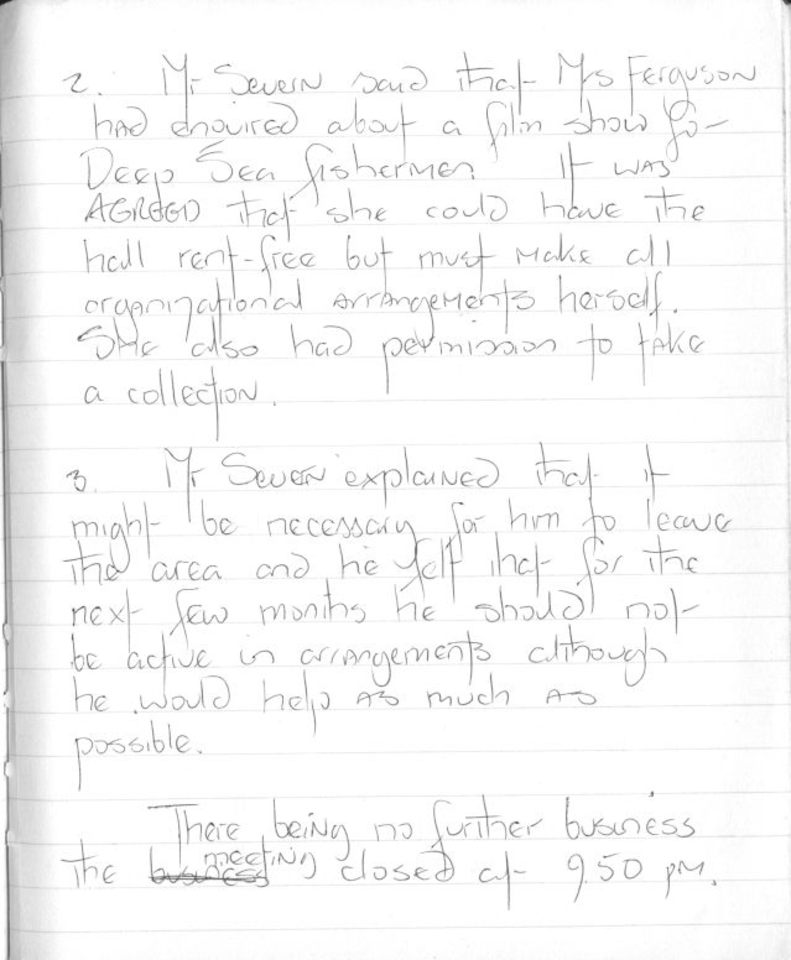 2. Mr Severn said that Mrs Ferguson
had enquired about a film show for
Deep Sea fishermen. It was
AGREED that she could have the
hall rent-free but must make all
organizational arrangements herself.
She also had permission to take
a collection.
3. Mr Severn explained that it
might be necessary for him to leave
the area and he felt that for the
next few months he should not
be active in arrangements although
he would help as much as
possible.
There being no further business
the business meeting closed at 9.50 pm.